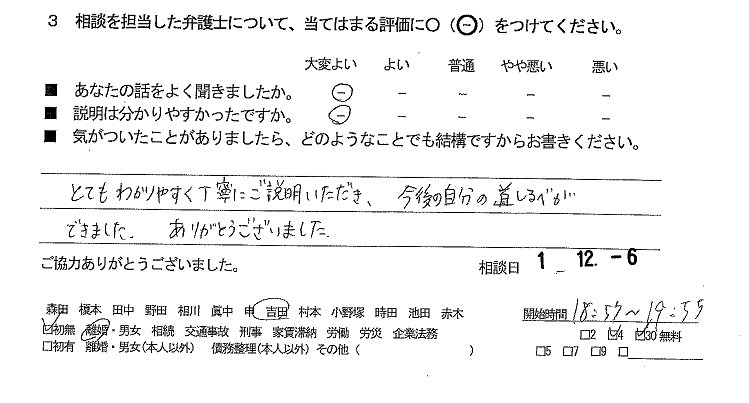 3 相談を担当した弁護士について、当てはまる評価に○（㊀）をつけてください。
大変よい よい 普通 やや悪い 悪い
■ あなたの話をよく聞きましたか。 ㊀ － － － －
■ 説明は分かりやすかったですか。 ㊀ － － － －
■ 気がついたことがありましたら、どのようなことでも結構ですからお書きください。
とてもわかりやすく丁寧にご説明いただき、今後の自分の道しるべが
できました。 ありがとうございました。
ご協力ありがとうございました。
相談日 1 － 12. － 6
森田 榎本 田中 野田 相川 眞中 申 吉田 村本 小野塚 時田 池田 赤木
開始時間 18:57～19:55
☑初無 離婚・男女 相続 交通事故 刑事 家賃滞納 労働 労災 企業法務
□2 ☑4 ☑30 無料
□初有 離婚・男女(本人以外) 債務整理(本人以外) その他 ( )
□5 □7 □9 □